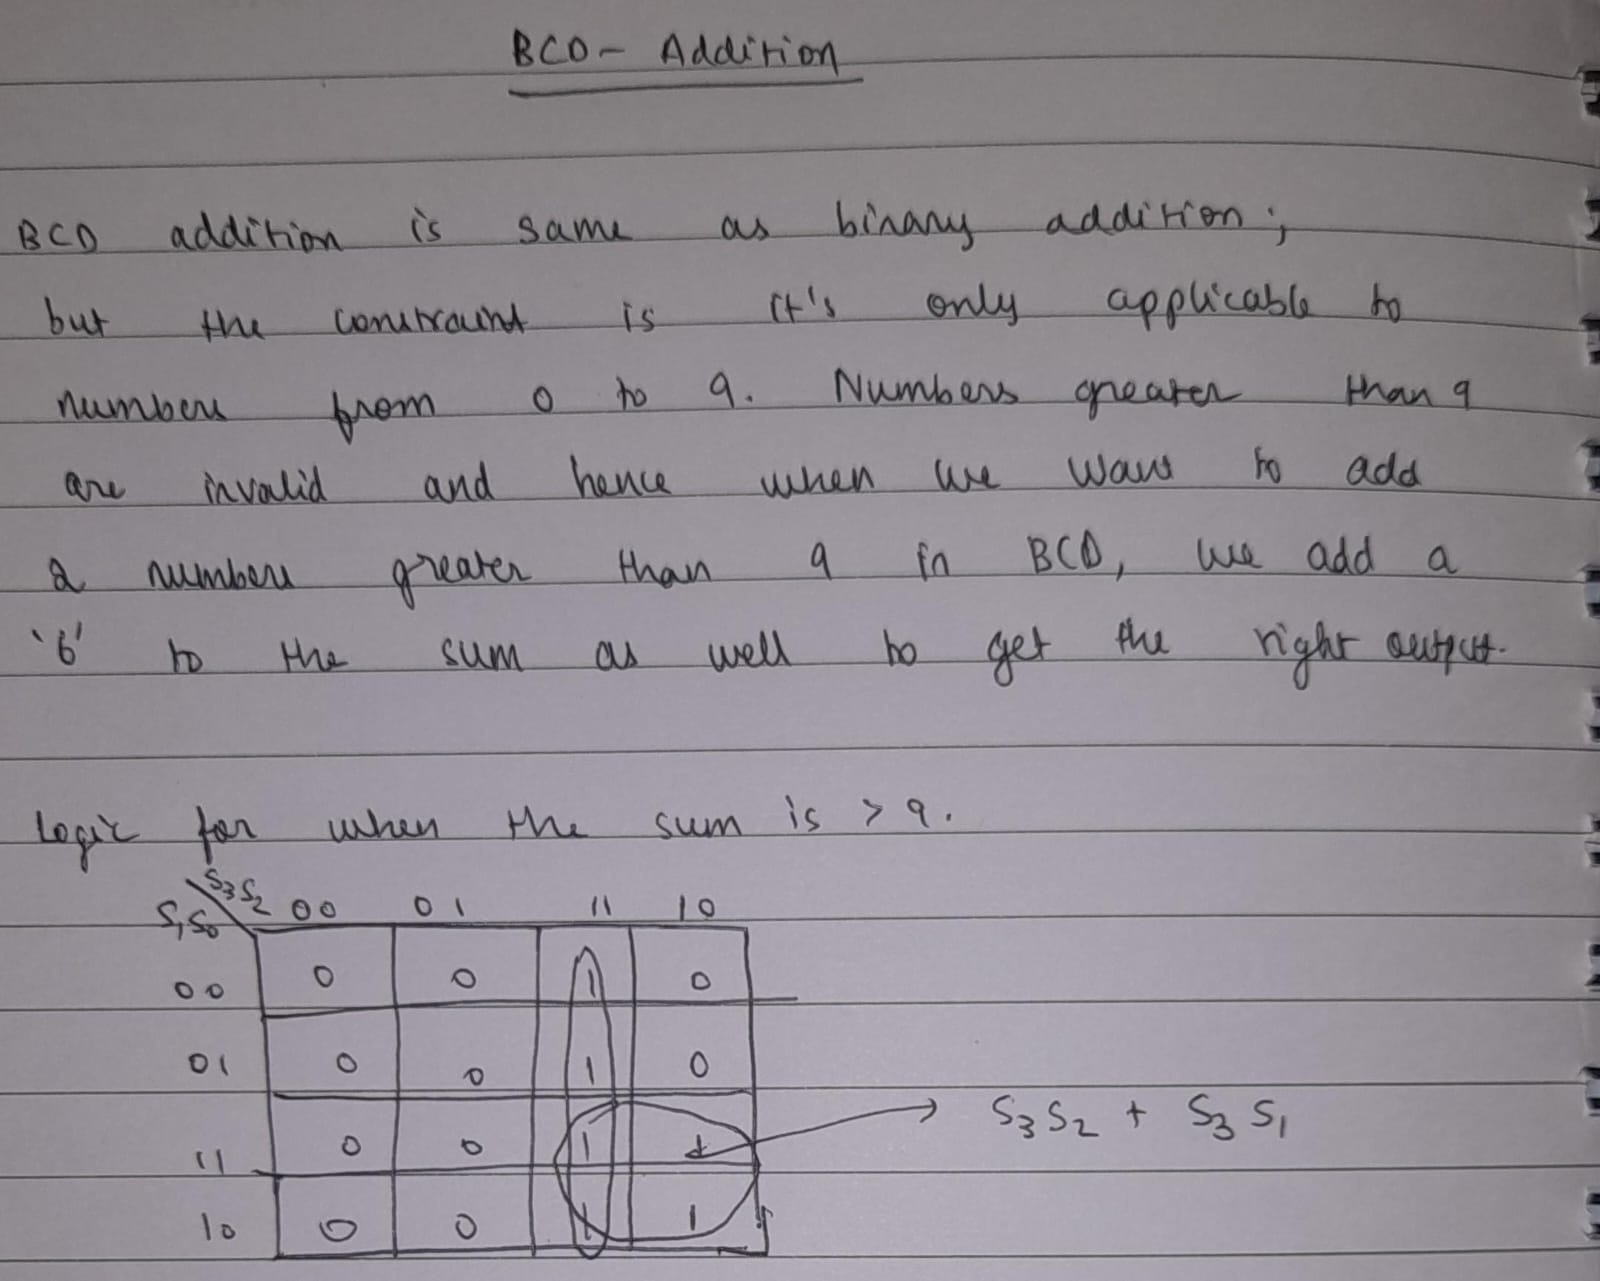 BCD - Addition
BCD addition is same as binary addition;
but the constraint is it's only applicable to
numbers from 0 to 9. Numbers greater than 9
are invalid and hence when we want to add
a numbers greater than 9 in BCD, we add a
'6' to the sum as well to get the right output.
Logic for when the sum is > 9.
S3S2 00 01 11 10
S1S0
00 0 0 1 0
01 0 0 1 0
11 0 0 1 1 → S3S2 + S3S1
10 0 0 1 1